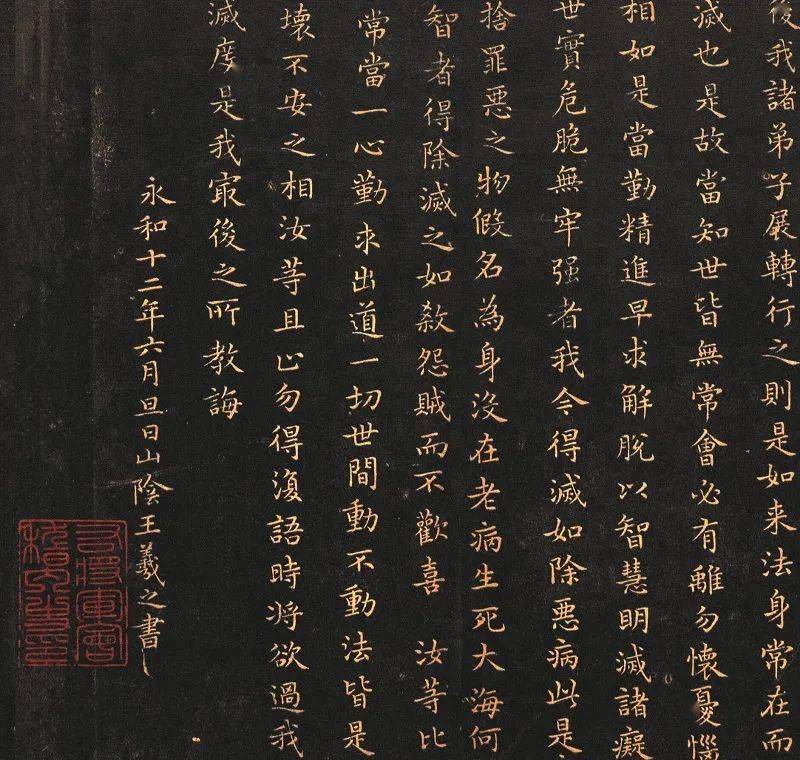 後我諸弟子展轉行之則是如来法身常在而
滅也是故當知世皆無常會必有離勿懷憂惱
相如是當勤精進早求解脫以智慧明滅諸癡
世實危脆無牢强者我今得滅如除惡病此是
捨罪惡之物假名為身没在老病生死大海何
智者得除滅之如殺怨賊而不歡喜 汝等比
常當一心勤求出道一切世間動不動法皆是
壞不安之相汝等且止勿得復語時将欲過我
滅度是我冣後之所教誨
永和十二年六月旦日山陰王羲之書
右將軍會
稽内史印